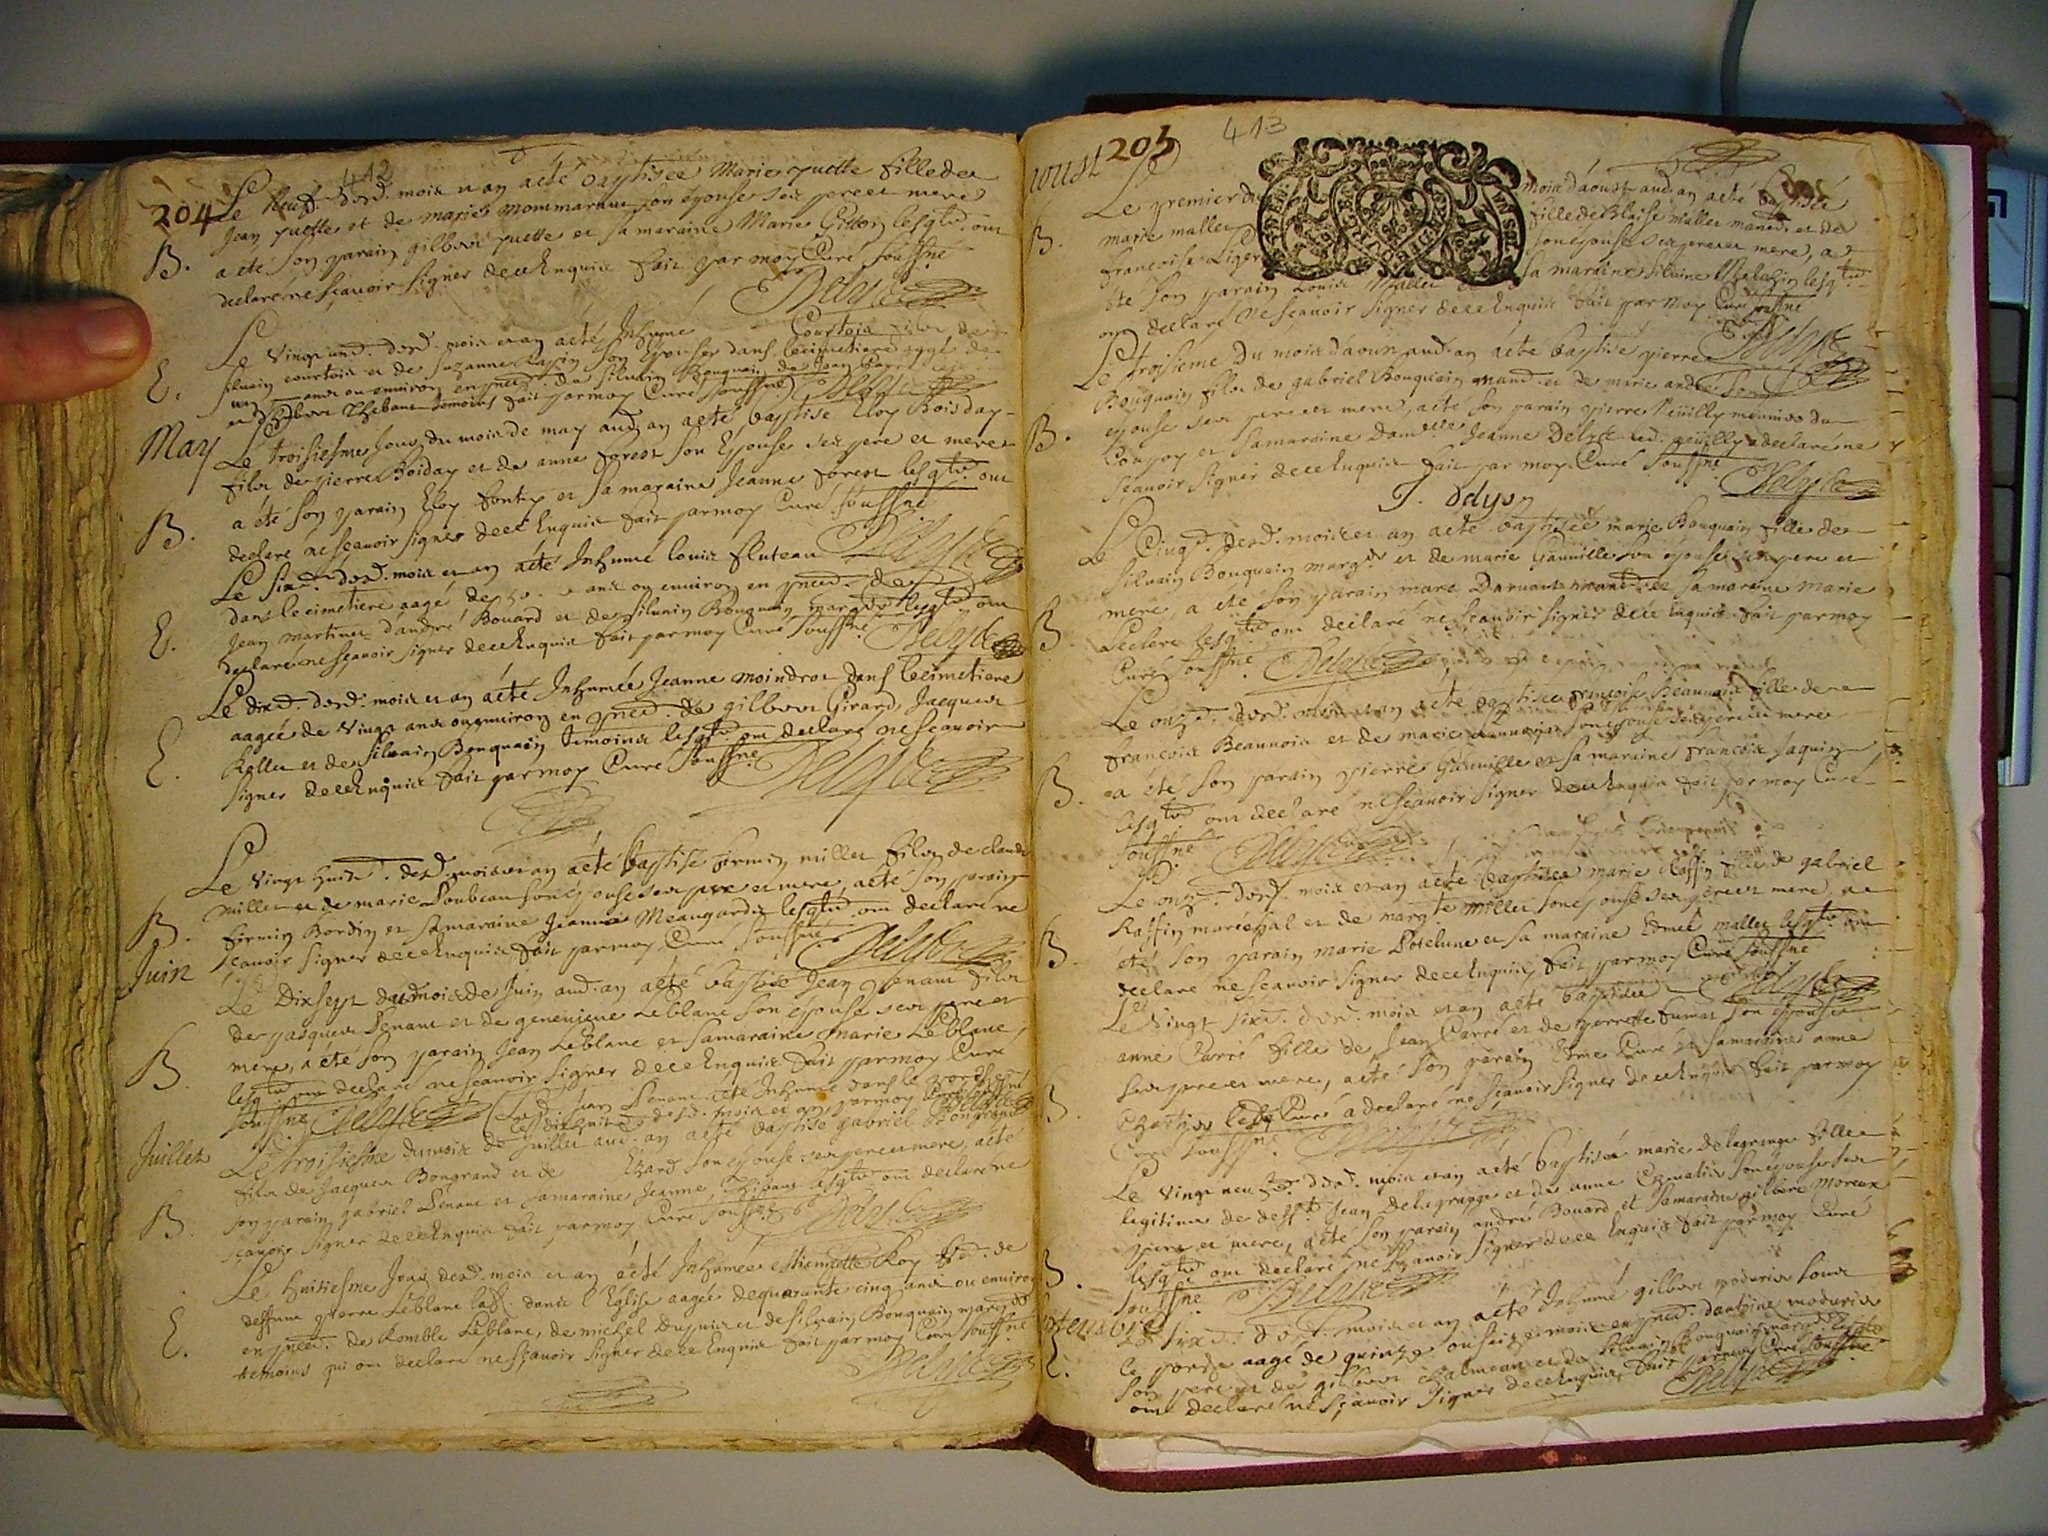 204
412
Le neufe desd. mois et an a eté baptisée Marie yuette fille de
Jean yuette et de marie mommarau son épouse ses pere et mere
B.
a eté son parain gilbert yuette et sa maraine Marie Gitton lesqls. ont
declaré ne sçauoir signer de ce Enquis fait par moy Curé soussné
Delyle
Le vingt und. desd. mois et an a eté Inhumé Courtois filx de
E.
siluain courtois et de suzanne son Epouse dans le cimetiere aagé de
un ans ou environ en pnce. de siluain Bouquain de Jean
et de gilbert Thibaut temoins fait par moy Curé soussné Delyle
May
Le troisiesme Jour du mois de may aud. an a eté baptisé Eloy Boisday
filx de pierre Boiday et de anne forest son Epouse ses pere et mere
B.
a eté son parain Eloy et sa maraine Jeanne forest lesqls. ont
declaré ne sçauoir signer de ce Enquis fait par moy Curé soussné
Delyle
Le six desd. mois et an a eté Inhumé louis fluteau
dans le cimetiere aagé de 50 ans ou environ en pnce. de
E.
Jean martinet d'andré Bouard et de siluain Bouquain marg. lesqls. ont
declaré ne sçauoir signer de ce Enquis fait par moy Curé soussné Delyle
Le dixe. desd. mois et an a eté Inhumée Jeanne moindrot dans le cimetiere
aagée de vingt ans ou enuiron en pnce. de gilbert Girard, Jacques
E.
Rollet et de siluain Bouquain temoins lesqls. ont declaré ne sçauoir
signer de ce Enquis fait par moy Curé soussné. Delyle
Le vingt huite. desd. mois et an a eté baptisé firmin millet filx de claude
millet et de marie Loubeau son epouse ses pere et mere, a eté son parain
B.
firmin Bordin et sa maraine Jeanne Meaugardis lesqls. ont declaré ne
sçauoir signer de ce Enquis fait par moy Curé soussné Delyle
Juin
Le Dix sept du mois de Juin aud. an a eté baptisé Jean Penant filx
de jacques Penant et de geneuieue Leblanc son épouse ses pere et
B.
mere, a eté son parain Jean Leblanc et sa maraine marie Leblanc
lesqls. ont declaré ne sçauoir signer de ce Enquis fait par moy Curé
soussné Delyle Led. Jean Penant a eté Inhumé dans le porche
Le dix huite desd. mois et an par moy Curé soussné
Juillet
Le troisiesme du mois de Juillet aud. an a eté baptisé gabriel Bongrand
filx de Jacques Bongrand et de Ezard son epouse ses pere et mere, a eté
B.
son parain gabriel Penant et sa maraine Jeanne Thibaut lesqls. ont declaré ne
sçauoir signer de ce Enquis fait par moy Curé soussné Delyle
Le huitiesme Jour desd. mois et an a eté Inhumée estiennette Roy fe. de
deffunt pierre Leblanc lab. dans l'Eglise aagée de quarante cinq ans ou enuiron
E.
en pnce. de Romble Leblanc, de michel Dupuis et de siluain Bouquain marg.
temoins qui ont declaré ne sçauoir signer de ce Enquis fait par moy Curé soussné
Delyle
205
413
aoust
Le premier du mois d'aoust aud. an a eté baptisée
B.
marie mallet fille de Blaise mallet man. et de
francoise Liger son epouse ses pere et mere, a
été son parain Louis Mallet et sa maraine siluine lesqls.
ont declaré ne sçauoir signer de ce Enquis fait par moy Curé soussné
Delyle
Le troisieme du mois d'aoust aud. an a eté baptisé pierre
Bouquain filx de gabriel Bouquain man. et de marie andre son
B.
epouse ses pere et mere, a eté son parain pierre meunier du
Coupoy et sa maraine Damlle. Jeanne Delyle led. a declaré ne
sçauoir signer de ce Enquis fait par moy Curé soussné
Delyle
Le Cinqe. desd. mois et an a eté baptisée marie Bouquain fille de
siluain Bouquain marg. et de marie Gauuille son epouse ses pere et
B.
mere, a eté son parain marc Daruaut man. et sa maraine Marie
Leclerc lesqls. ont declaré ne sçauoir signer de ce Enquis fait par moy
Curé soussné. Delyle
Le onze. desd. mois et an a eté baptisée françoise Beaunois fille de
françois Beaunois et de marie son epouse ses pere et mere
B.
a été son parain pierre Gauuille et sa maraine francoise Jaquin
lesqls. ont declaré ne sçauoir signer de ce Enquis fait par moy Curé
soussné Delyle
Le onze. desd. mois et an a eté baptisée marie Raffin fille de gabriel
Raffin maréchal et de margte. millet son epouse ses pere et mere, a
B.
été son parain marie et sa maraine Edmée mallet lesqls. ont
declaré ne sçauoir signer de ce Enquis fait par moy Curé soussné
Delyle
Le vingt sixe. desd. mois et an a eté baptisée
anne Carré fille de Jean Carré et de perrette fumat son epouse
B.
ses pere et mere, a eté son parain Edme Carré et sa maraine anne
lesd. Carré a declaré ne sçauoir signer de ce Enquis fait par moy
Curé soussné. Delyle
Le vingt neufe. desd. mois et an a eté baptisée marie delagrange fille
legitime de defft. Jean delagrange et de anne son epouse ses
B.
pere et mere, a eté son parain andré Bouard et sa maraine gilberte moreux
lesqls. ont declaré ne sçauoir signer de ce Enquis fait par moy Curé
soussné Delyle
Septembre
Le sixe. desd. mois et an a eté Inhumé gilbert sous
E.
le porche aagé de quinze ou seize mois en pnce. d'antoine
son pere et de gilbert et de siluain Bouquain marg. lesqls.
ont declaré ne sçauoir signer de ce Enquis fait par moy Curé soussné
Delyle